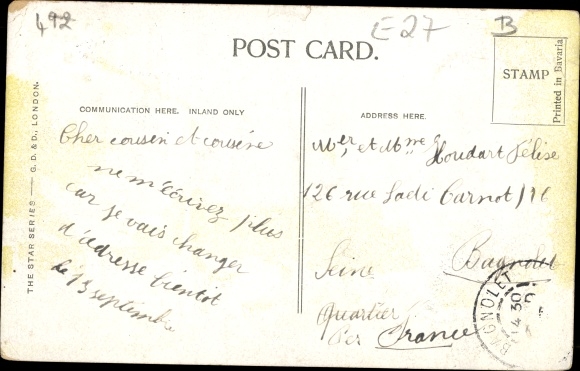 492
E-27
B
POST CARD.
STAMP
Printed in Bavaria
THE STAR SERIES — G. D. & D., LONDON.
COMMUNICATION HERE. INLAND ONLY
ADDRESS HERE.
Cher cousin et cousine
ne m'écrivez plus
car je vais changer
d'adresse bientot
le 13 septembre
Mer, et Mme Houdart Félise
126 rue Sadi Carnot
Seine
Bagnolet
Quartier
France
BAGNOLET